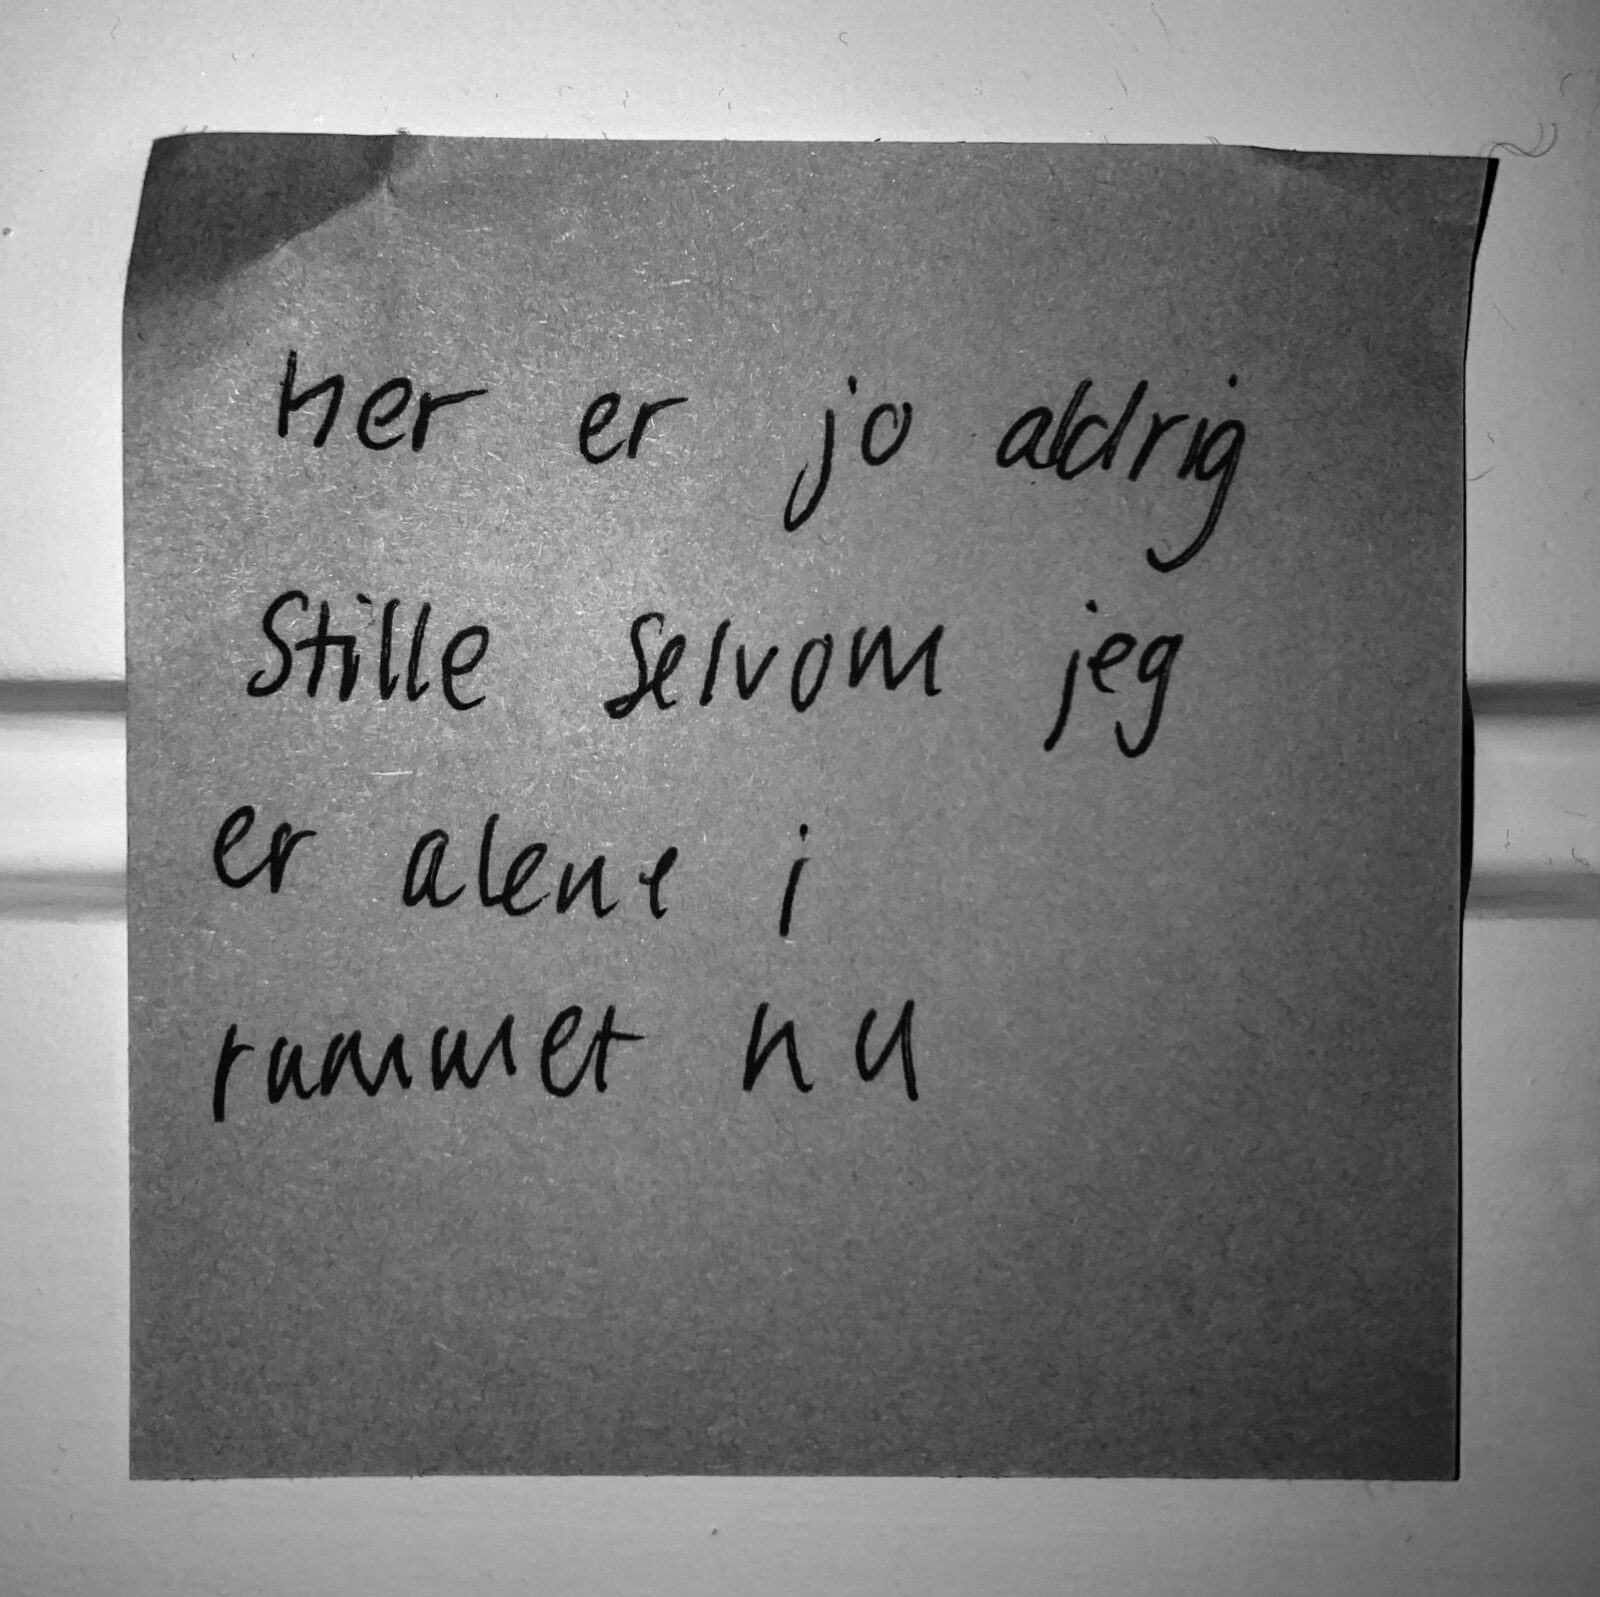 her er jo aldrig
Stille selvom jeg
er alene i
rummet nu